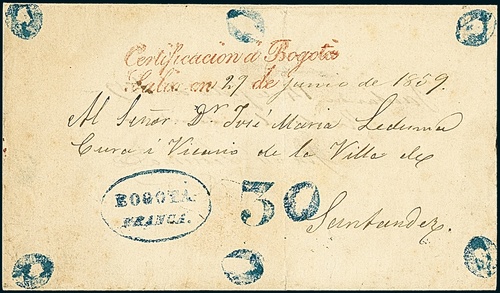 Certificacion á Bogotá
Salió en 27 de junio de 1859.
Al Señor Dr José Maria Ledesma
Cura i Vicario de la Villa de
BOGOTA.
FRANCA.
30
Santander.